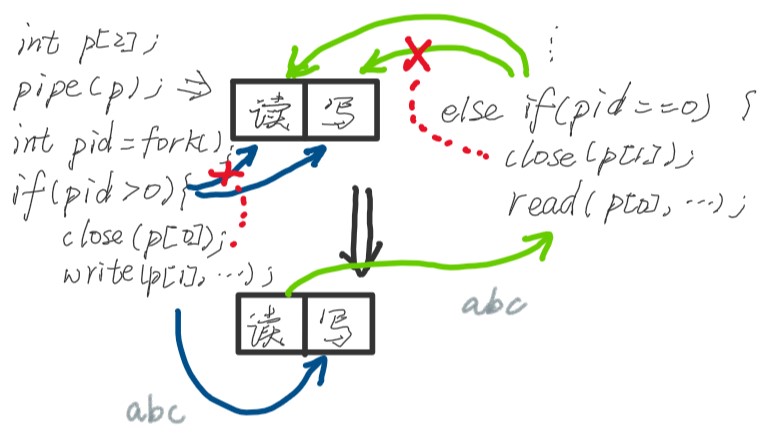 int p[2];
pipe(p); ⇒
int pid=fork();
if(pid>0){
close(p[0]);
write(p[1],…);
读 写
⋮
else if(pid==0) {
close(p[1]);
read(p[0],…);
读 写
abc
abc